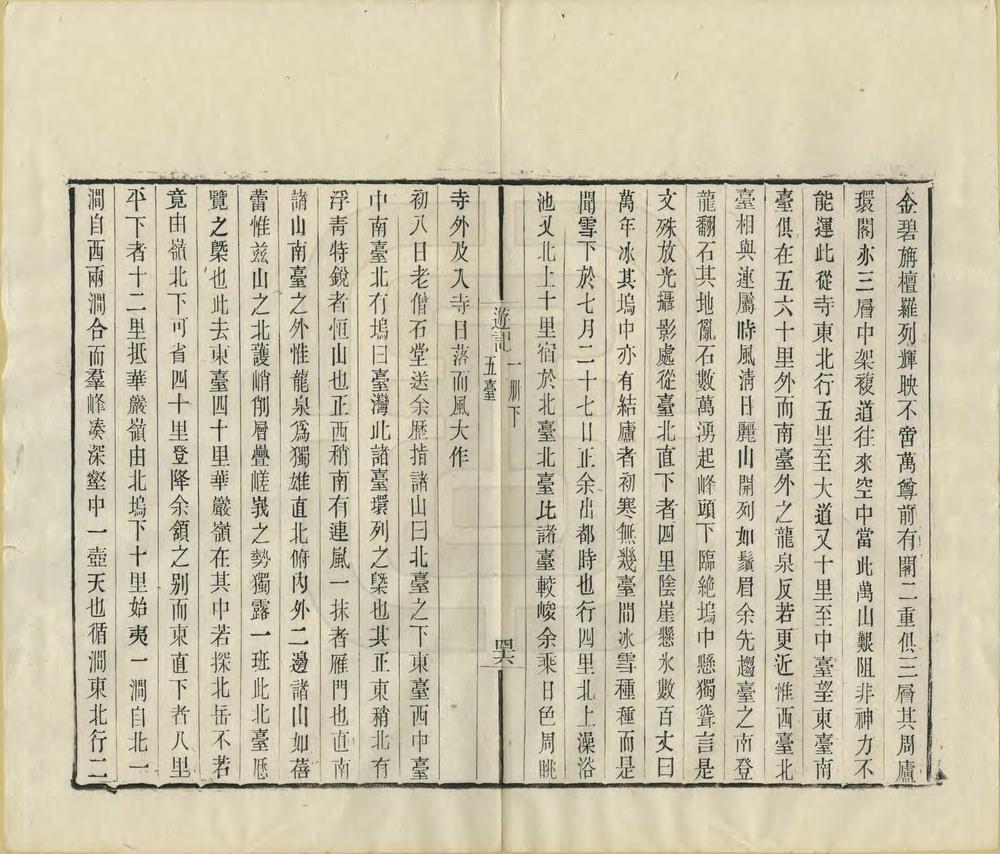 金碧旃檀羅列輝映不啻萬尊前有閣二重俱三層其周廬
環閣亦三層中架複道往來空中當此萬山艱阻非神力不
能運此從寺東北行五里至大道又十里至中臺望東臺南
臺俱在五六十里外而南臺外之龍泉反若更近惟西臺北
臺相與連屬時風清日麗山開列如鬚眉余先趨臺之南登
龍翻石其地亂石數萬湧起峰頭下臨絶塢中懸獨聳言是
文殊放光攝影處從臺北直下者四里陰崖懸氷數百丈曰
萬年冰其塢中亦有結廬者初寒無幾臺間冰雪種種而是
聞雪下於七月二十七日正余出都時也行四里北上澡浴
池又北上十里宿於北臺北臺比諸臺較峻余乘日色周眺
遊記 一册下
五臺
四六
寺外及入寺日落而風大作
初八日老僧石堂送余歷指諸山曰北臺之下東臺西中臺
中南臺北有塢曰臺灣此諸臺環列之槩也其正東稍北有
浮青特銳者恒山也正西稍南有連嵐一抹者雁門也直南
諸山南臺之外惟龍泉爲獨雄直北俯内外二邊諸山如蓓
蕾惟兹山之北護峭削層疊嵯峩之勢獨露一班此北臺歷
覽之槩也此去東臺四十里華嚴嶺在其中若探北岳不若
竟由嶺北下可省四十里登降余頷之别而東直下者八里
平下者十二里抵華嚴嶺由北塢下十里始夷一澗自北一
澗自西兩澗合而羣峰凑深壑中一壺天也循澗東北行二